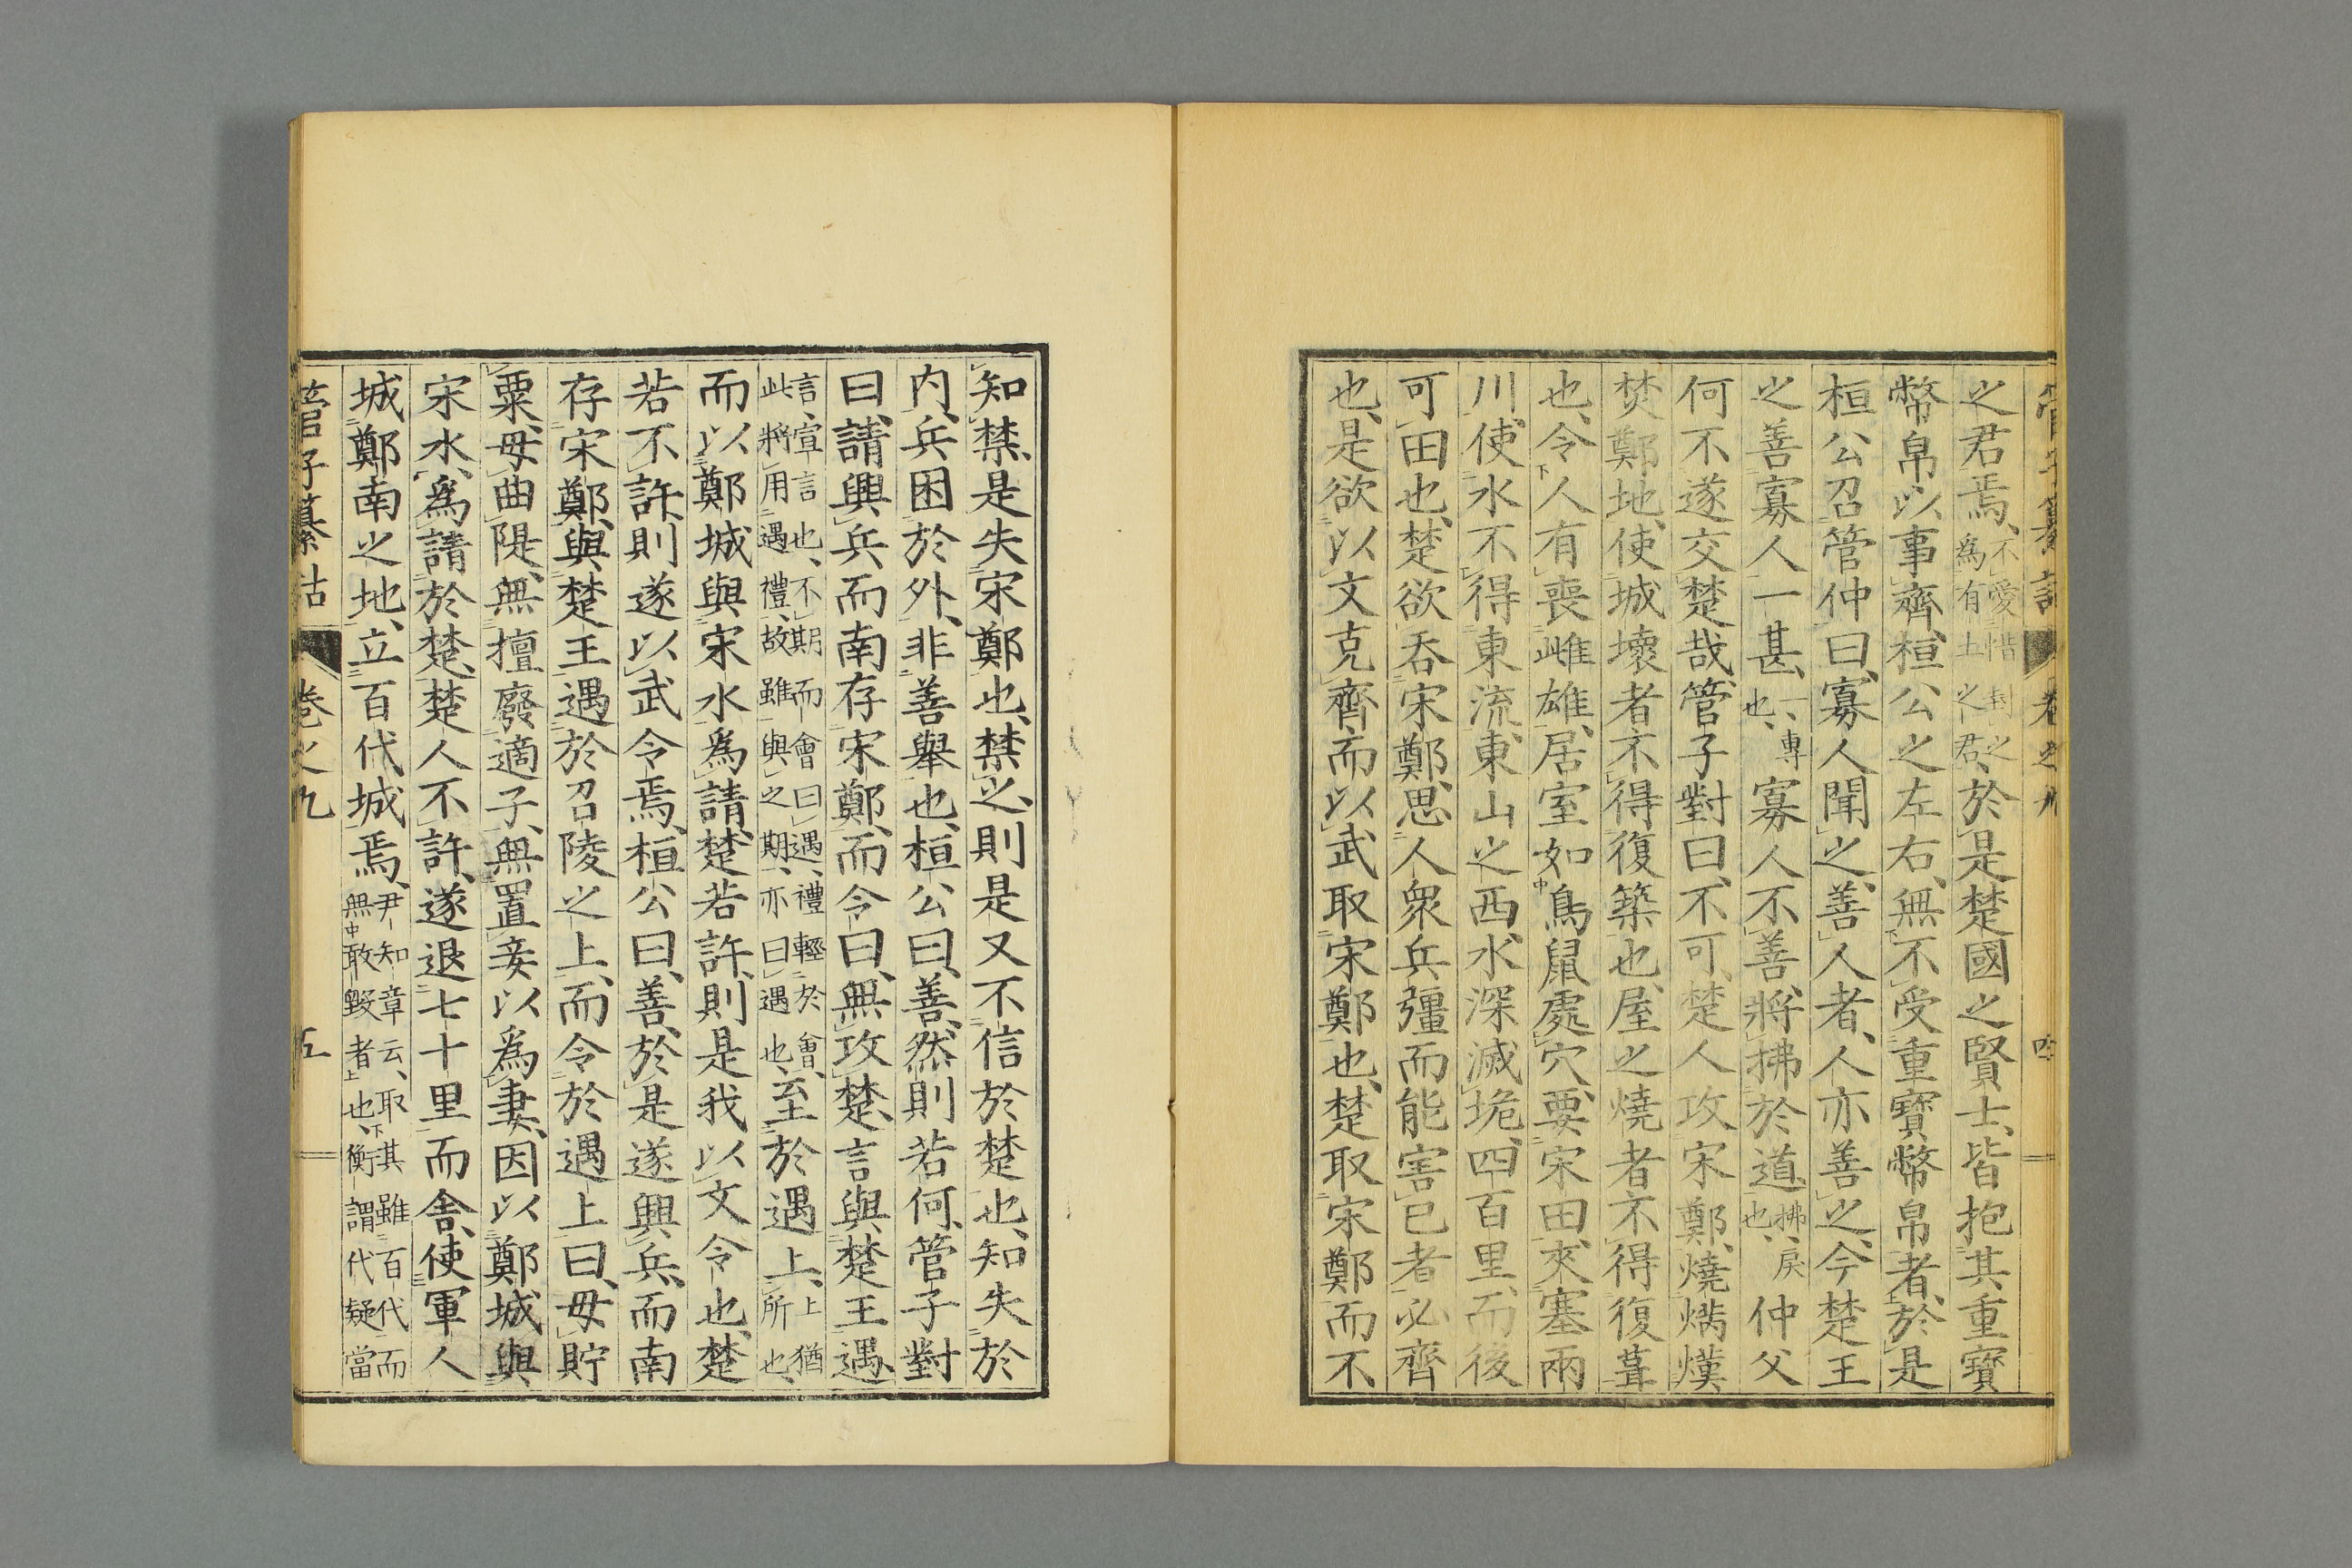 管子纂詁 卷之九 四
之君焉、不愛惜封之為有土之君、於是楚國之賢士、皆抱其重寶
幣帛以事齊、桓公之左右、無不受重寶幣帛者、於是
桓公召管仲曰、寡人聞之、善人者、人亦善之、今楚王
之善寡人一甚、一、專也、寡人不善、將拂於道、拂、戾也、仲父
何不遂交楚哉、管子對曰、不可、楚人攻宋鄭、燒焫熯
焚鄭地、使城壞者不得復築也、屋之燒者不得復葺
也、令人有喪雌雄、居室如鳥鼠處穴、要宋田、夾塞兩
川、使水不得東流、東山之西、水深滅垝、四百里、而後
可田也、楚欲吞宋鄭、思人衆兵彊而能害己者、必齊
也、是欲以文克齊、而以武取宋鄭也、楚取宋鄭而不
知禁、是失宋鄭也、禁之、則是又不信於楚也、知失於
内、兵困於外、非善舉也、桓公曰、善、然則若何、管子對
曰、請興兵而南存宋鄭、而令曰、無攻楚、言與楚王遇、
言、宣言也、不期而會曰遇、禮輕於會、此將用遇禮、故雖與之期、亦曰遇也、至於遇上、上猶所也、
而以鄭城與宋水為請、楚若許、則是我以文令也、楚
若不許、則遂以武令焉、桓公曰、善、於是遂興兵、而南
存宋鄭、與楚王遇於召陵之上、而令於遇上曰、毋貯
粟、毋曲隄、無擅廢適子、無置妾以為妻、因以鄭城與
宋水、為請於楚、楚人不許、遂退七十里而舍、使軍人
城鄭南之地、立百代城焉、尹知章云、取其雖百代而無敢毀者也、衡謂代疑當
管子纂詁 卷之九 五